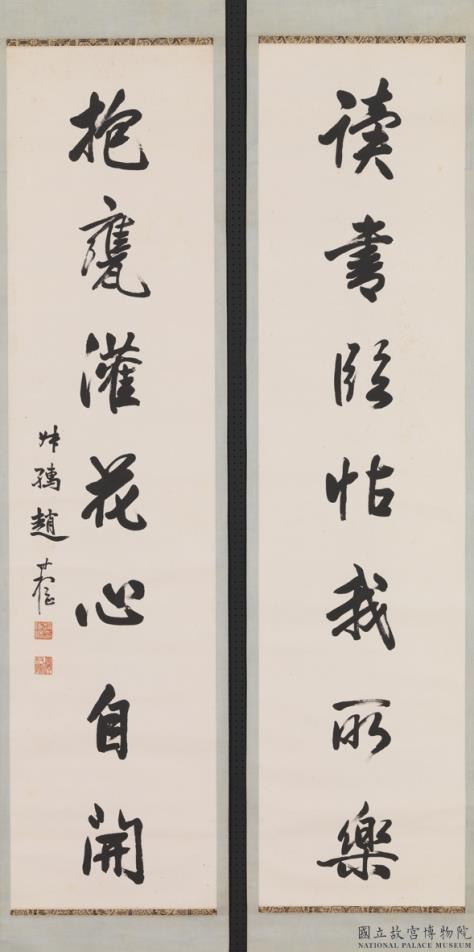 讀書臨帖我所樂
抱甕灌花心自開
叔孺趙
國立故宮博物院
NATIONAL PALACE MUSEUM